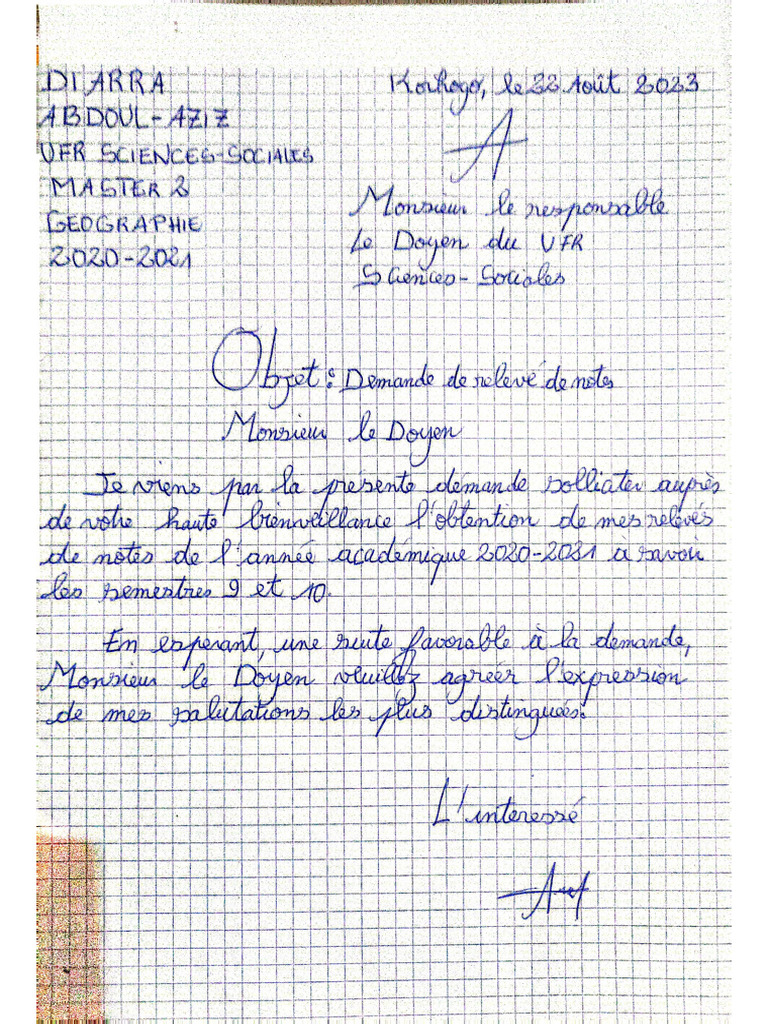 DIARRA
Korhogo, le 22 Août 2023
ABDOUL-AZIZ
A
UFR SCIENCES-SOCIALES
MASTER 2
Monsieur le responsable
GEOGRAPHIE
Le Doyen du UFR
2020-2021
Sciences-Sociales
Objet : Demande de relevé de notes
Monsieur le Doyen
Je viens par la présente demande solliciter auprès
de votre haute bienveillance l'obtention de mes relevés
de notes de l'année académique 2020-2021 à savoir
les semestres 9 et 10.
En esperant, une suite favorable à la demande,
Monsieur le Doyen veuillez agréer l'expression
de mes salutations les plus distinguées.
L'interessé